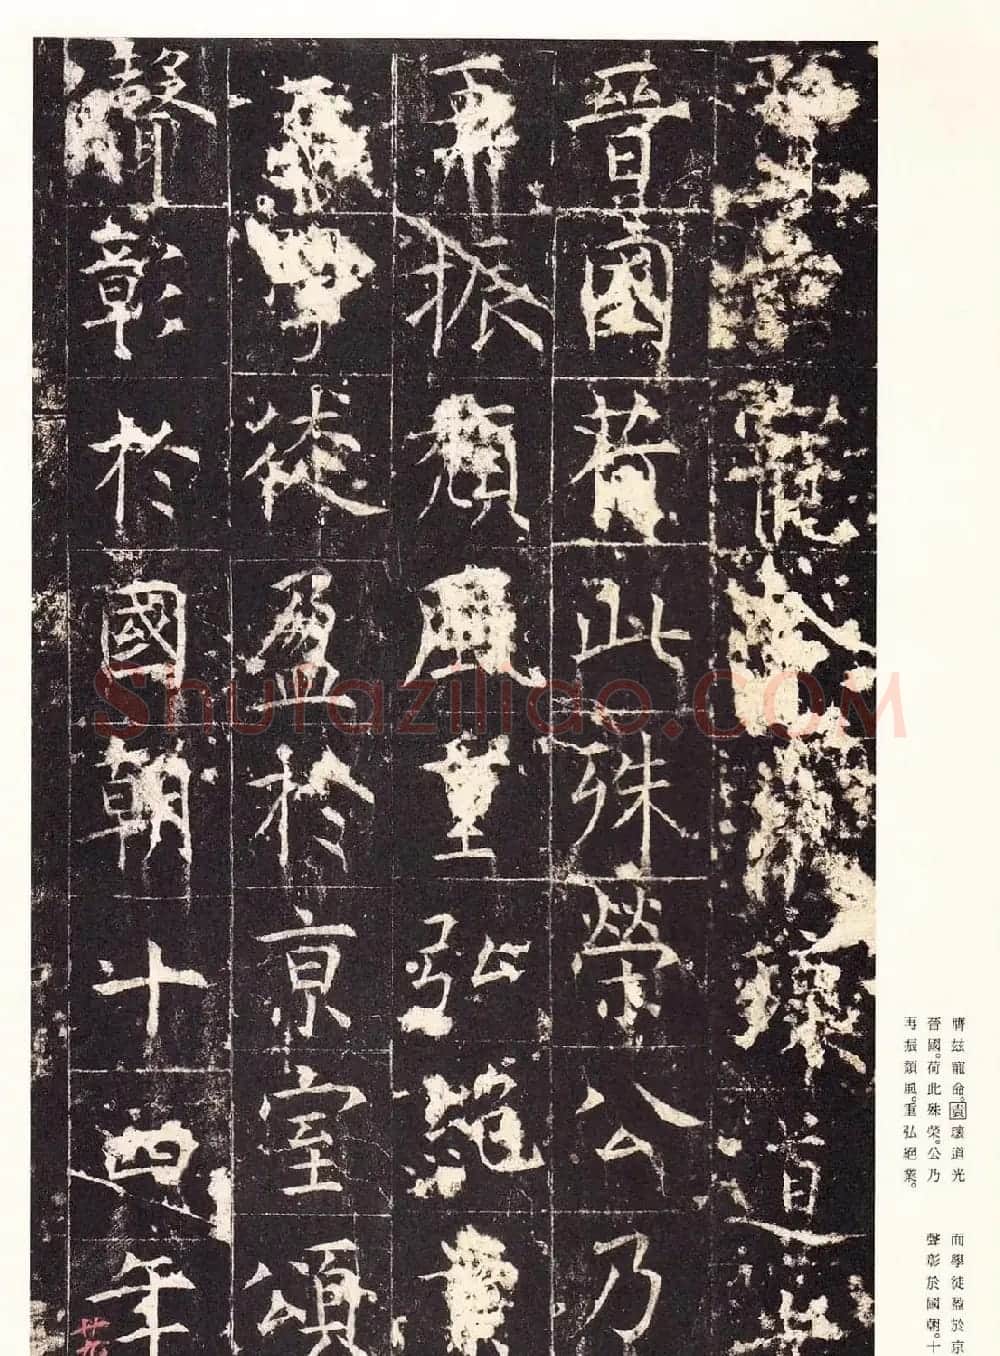 膺兹寵命瓌道光
晉國荷此殊榮公乃
再振頹風重弘絕業
而學徒盈於京室頌
聲彰於國朝十四年
廿九
膺兹寵命。瓌道光
晉國。荷此殊榮。公乃
再振頹風。重弘絕業。
而學徒盈於京
聲彰於國朝。十
Shufaziliao.COM